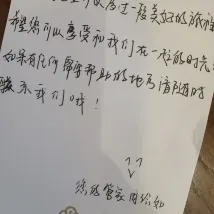 度过一段美好的旅程
希望您可以享受和我们在一起的时光
如果有任何需要帮助的地方请随时
联系我们哦！
您的管家